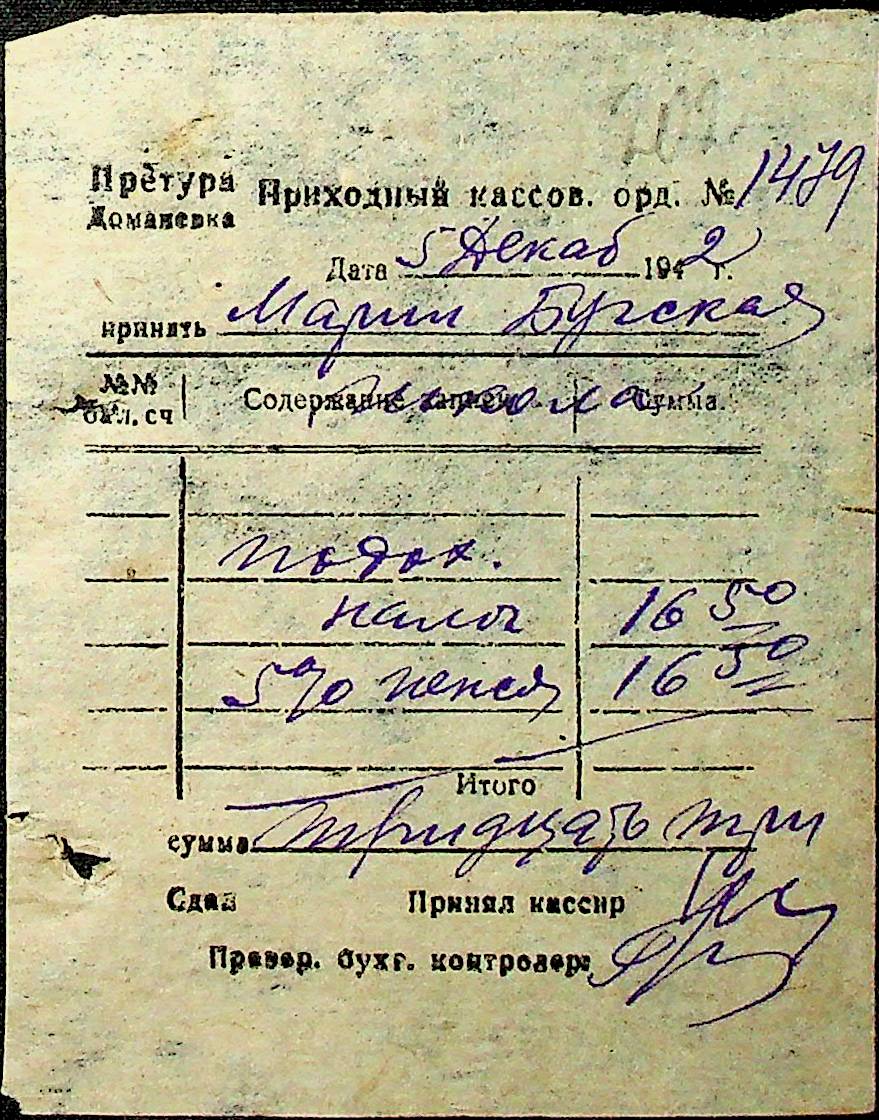 Претура
Домановка
Приходный кассов. орд. № 1479
Дата 5 Декаб 1942 г.
принять Марии Бугская
школа
№№ бал. сч Содержание записи Сумма.
подох.
налог 16 50
5% пенся 16 50
Итого
сумма тридцать три
Сдал Принял кассир
Провер. бухг. контролер: